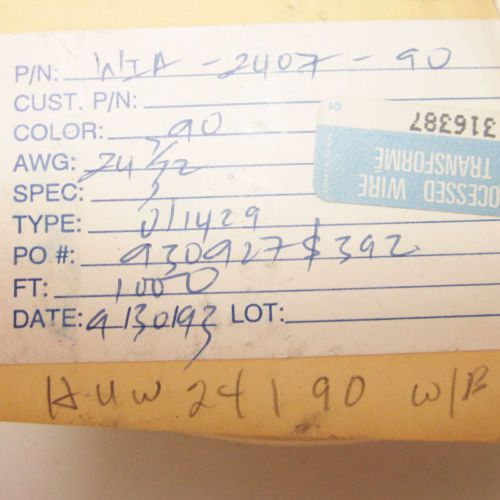 P/N: WIA - 2407 - 90
CUST. P/N:
COLOR: 90
AWG: 24/32
SPEC:
TYPE: U/1429
PO #: 930927$392
FT: 1000
DATE: 9/30/93 LOT:
316387
OCESSED WIRE
TRANSFORME
HUW 24 1 90 W/B